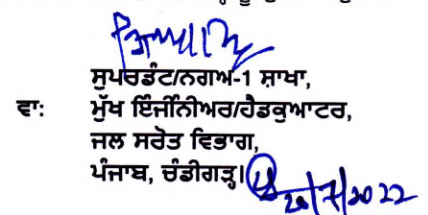 ਸੁਪਰਡੰਟ/ਨਗਅ-1 ਸ਼ਾਖਾ,
ਵਾ: ਮੁੱਖ ਇੰਜੀਨਿਅਰ/ਹੈਡਕੁਆਟਰ,
ਜਲ ਸਰੋਤ ਵਿਭਾਗ,
ਪੰਜਾਬ, ਚੰਡੀਗੜ੍ਹ।
20/7/2022